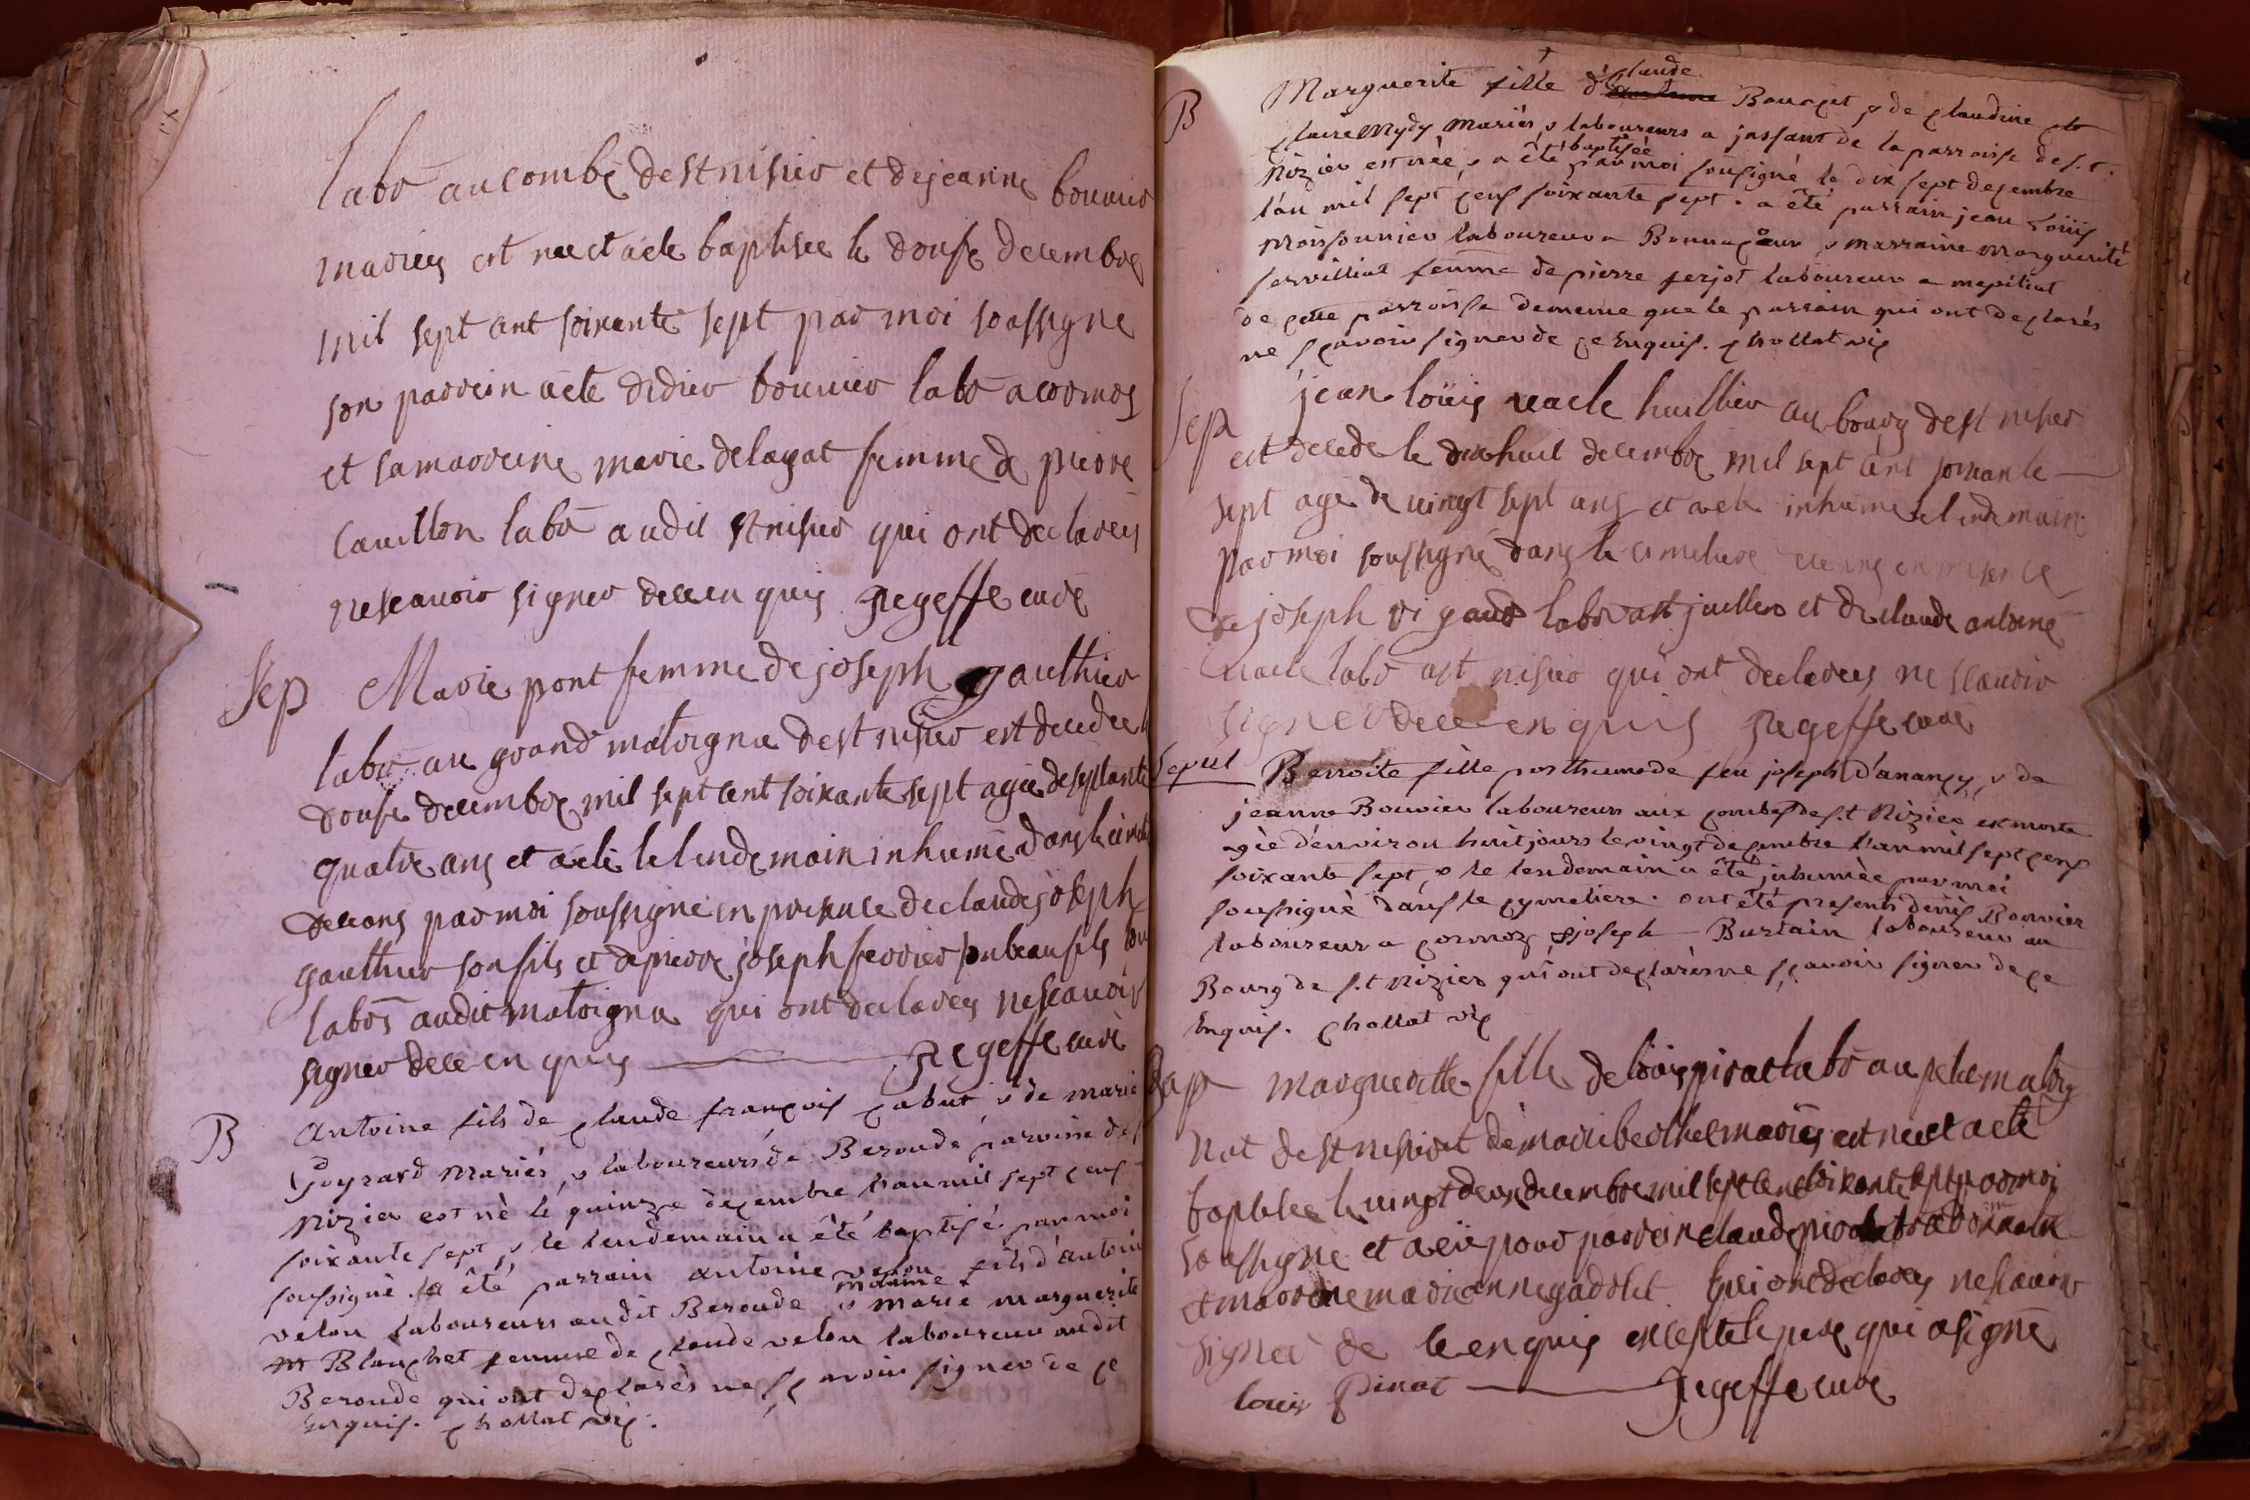 labr au combe de st nisier et de jeanne bouvier
mariez est nee et a ete baptisee le douse decembre
mil sept cent soixante sept par moi soussigne
son parrein a ete didier bouvier labr a cormos
et sa marreine marie delagat femme de pierre
cauillon labr audit st nisier qui ont declarez
ne scavoir signer de ce en quis Jegeffe curé
Sep Marie pont femme de joseph gauthier
labr au grand malvigna de st nisier est decedee
douse decembre mil sept cent soixante sept agée de septante
quatre ans et a ete le lendemain inhumé dans le
de ceans par moi soussigné en presence de claude joseph
gauthier son fils et de pierre joseph ferrier son beau fils
labrs audit malvigna qui ont declarez ne scavoir
signer de ce en quis Jegeffe curé
B Antoine fils de claude françois cabut & de marie
Goyrard mariés, & laboureurs de Beroude parroisse de
Nizier est né le quinze decembre l'an mil sept cens
soixante sept, & le lendemain a été baptisé par moi
soussigné. a été parrain antoine velon fils d'antoine
velon laboureurs audit Beroude & marraine marie marguerite
Blanchet femme de claude velon laboureur audit
Beroude qui ont declarés ne sçavoir signer de ce
Enquis. chollat vic.
B Marguerite fille de claude Bouget, & de claudine
claire mariés, & laboureurs a jassant de la parroisse de s.t
Nizier est née, & a été baptisée par moi sousigné le dix sept decembre
l'an mil sept cens soixante sept. a été parrain jean Loüis
Moissonnier laboureur a & marraine marguerite
servilliat femme de pierre ferjot laboureur a mepiliat
de cette parroisse de meme que le parrain qui ont declarés
ne sçavoir signer de ce Enquis. chollat vic
Sep jean loüis uacle huillier au bourg de st nisier
est decede le dixhuit decembre mil sept cent soixante
sept agé de vingt sept ans et a ete inhume le lendemain
par moi soussigné dans le cimetiere de ceans en presence
de joseph rigaud labr a st juillers et de claude antoine
uacle labr a st nisier qui ont declarez ne scavoir
signer de ce en quis Jegeffe curé
Sepul Benoite fille posthume de feu joseph d'anancy, & de
jeanne Bouvier laboureurs aux combes de s.t Nizier est morte
agée d'environ huit jours le vingt decembre l'an mil sept cens
soixante sept, & le lendemain a été inhumée par moi
soussigné dans le cymetiere. ont été presents denis Bouvier
laboureur a cormoz & joseph Burtain laboureur au
Bourg de s.t Nizier qui ont declarés ne sçavoir signer de ce
Enquis. chollat vic
Bap marguerite fille de loüis pirat labr au petit malvig
nat de st nisier et de marie berthet mariez est nee et a ete
baptisee le vingt deux decembre mil sept cent soixante sept par moi
soussigne et a eü pour parrein claude
et marreine marie anne gadolet qui ont declarez ne scavoir
signer de ce en quis excepté le pere qui a signé
louis pirat Jegeffe curé